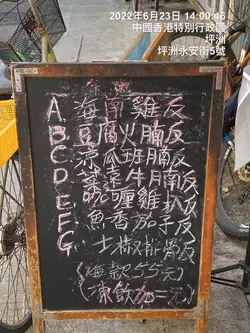 2022年6月23日 14:00:46
中國香港特別行政區
坪洲
坪洲永安街5號
A. 海南雞反
B. 豆腐火腩反
C. 涼瓜班腩反
D. 牛腩反
E. 咖喱雞扒反
F. 魚香茄子反
G. 士椒排骨反
(每款55元)
(凍飲加二元)